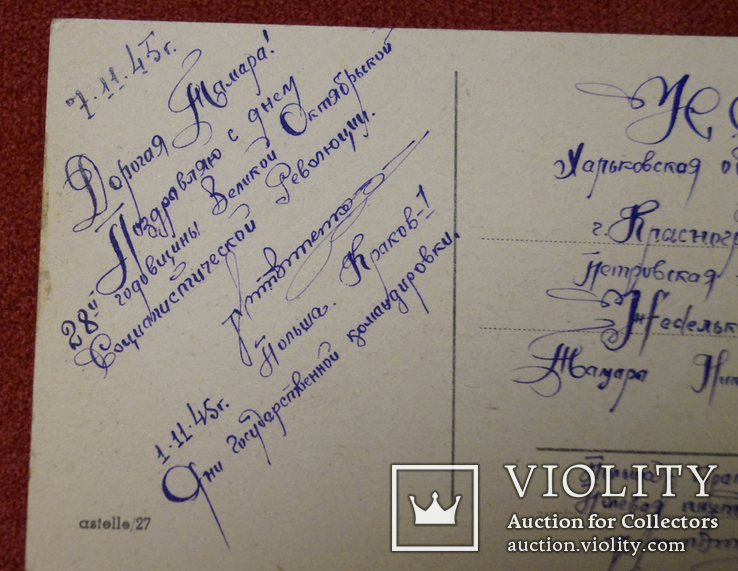 7.11.45г.
Дорогая Тамара!
Поздравляю с днем
28й годовщины Великой Октябрьской
Социалистической Революции.
Польша. Краков-1
1.11.45г.
Дни государственной командировки.
astelle/27
Харьковская
г. Красногр
Петровская
Недельк
Тамара Ник
Польша
Полевая
VIOLITY
Auction for Collectors
auction.violity.com